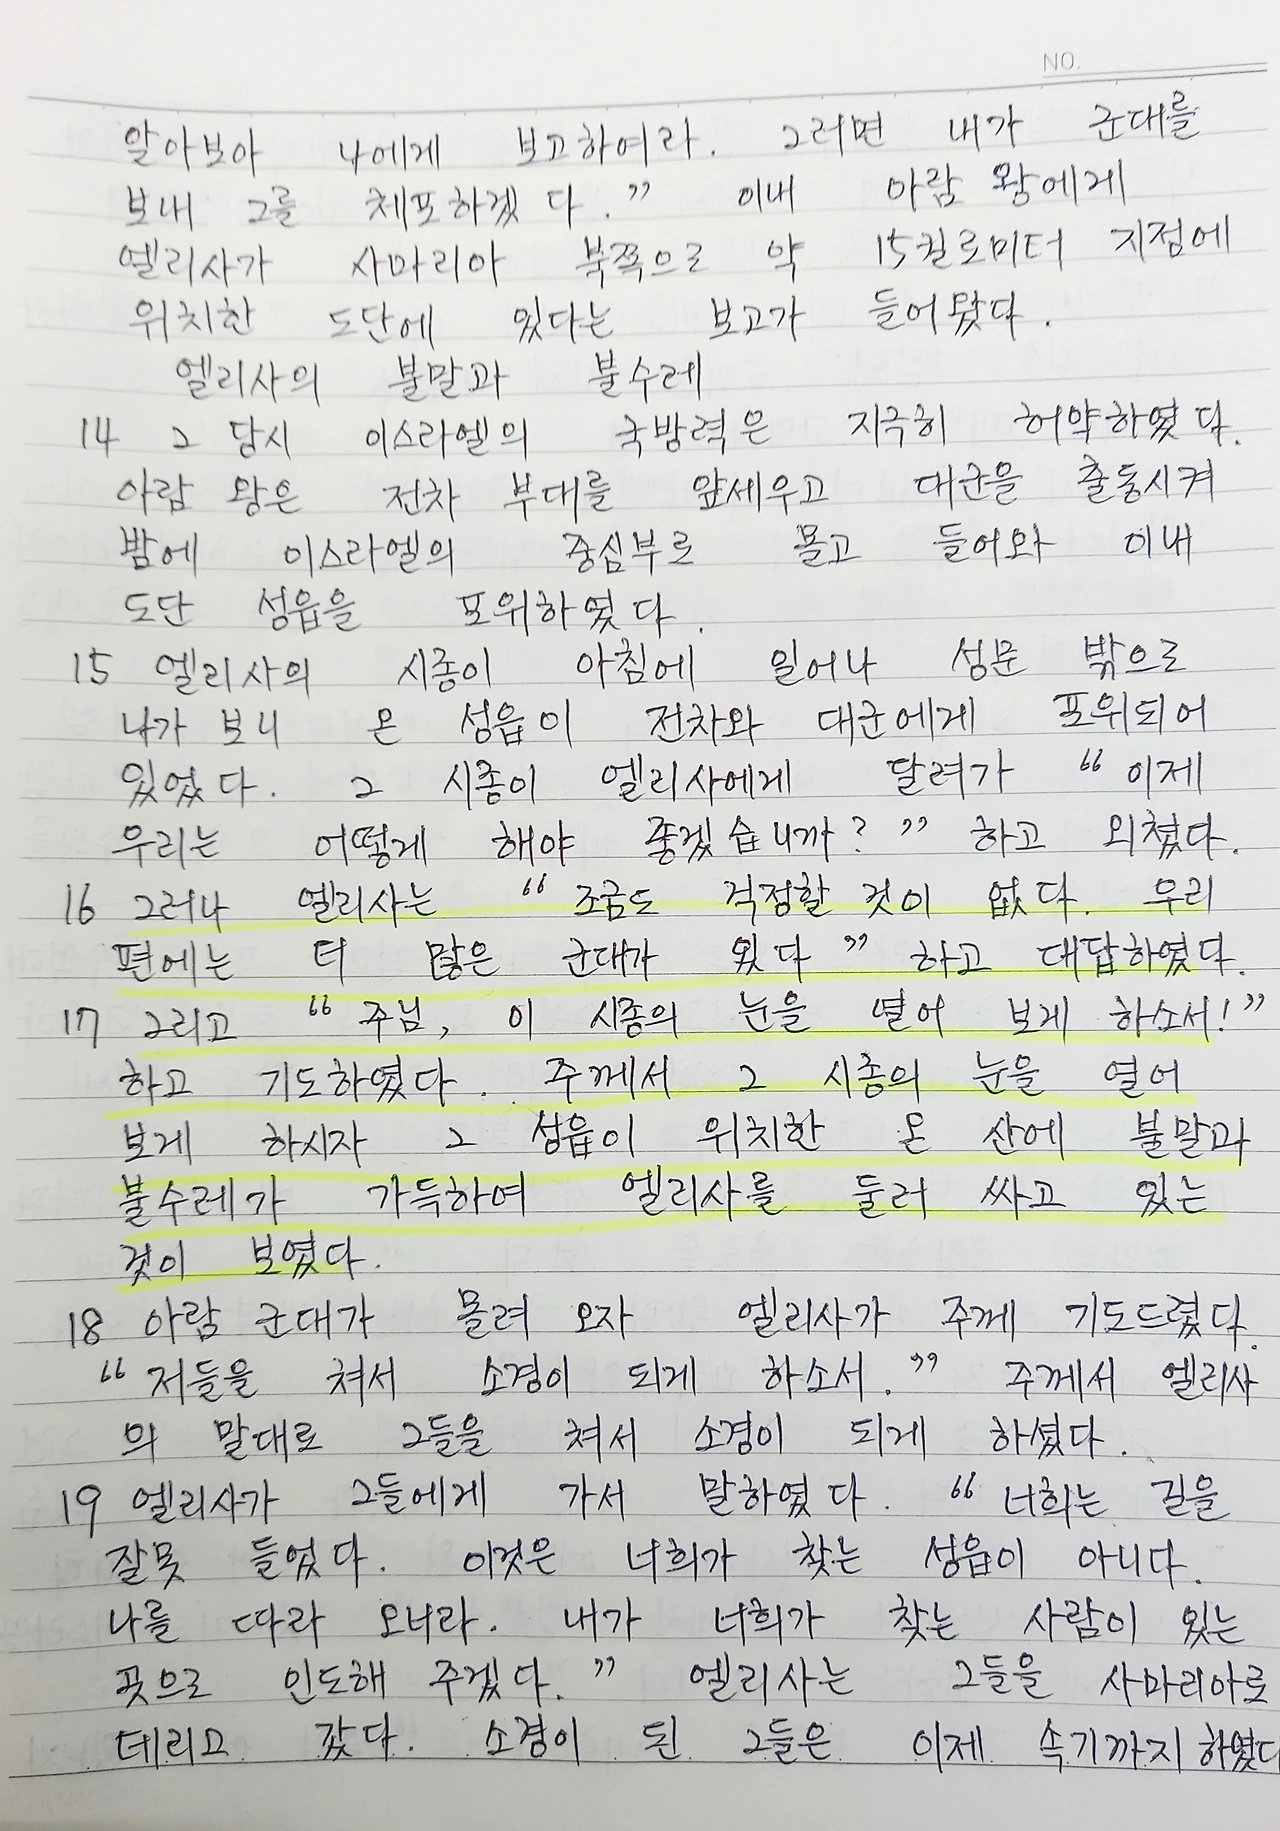 NO.
알아보아 나에게 보고하여라. 그러면 내가 군대를
보내 그를 체포하겠다.” 이내 아람 왕에게
엘리사가 사마리아 북쪽으로 약 15킬로미터 지점에
위치한 도단에 있다는 보고가 들어왔다.
엘리사의 불말과 불수레
14 그 당시 이스라엘의 국방력은 지극히 허약하였다.
아람 왕은 전차 부대를 앞세우고 대군을 출동시켜
밤에 이스라엘의 중심부로 몰고 들어와 이내
도단 성읍을 포위하였다.
15 엘리사의 시종이 아침에 일어나 성문 밖으로
나가 보니 온 성읍이 전차와 대군에게 포위되어
있었다. 그 시종이 엘리사에게 달려가 “이제
우리는 어떻게 해야 좋겠습니까?” 하고 외쳤다.
16 그러나 엘리사는 “조금도 걱정할 것이 없다. 우리
편에는 더 많은 군대가 있다” 하고 대답하였다.
17 그리고 “주님, 이 시종의 눈을 열어 보게 하소서!”
하고 기도하였다. 주께서 그 시종의 눈을 열어
보게 하시자 그 성읍이 위치한 온 산에 불말과
불수레가 가득하여 엘리사를 둘러 싸고 있는
것이 보였다.
18 아람 군대가 몰려 오자 엘리사가 주께 기도드렸다.
“저들을 쳐서 소경이 되게 하소서.” 주께서 엘리사
의 말대로 그들을 쳐서 소경이 되게 하셨다.
19 엘리사가 그들에게 가서 말하였다. “너희는 길을
잘못 들었다. 이것은 너희가 찾는 성읍이 아니다.
나를 따라 오너라. 내가 너희가 찾는 사람이 있는
곳으로 인도해 주겠다.” 엘리사는 그들을 사마리아로
데리고 갔다. 소경이 된 그들은 이제 속기까지 하였다